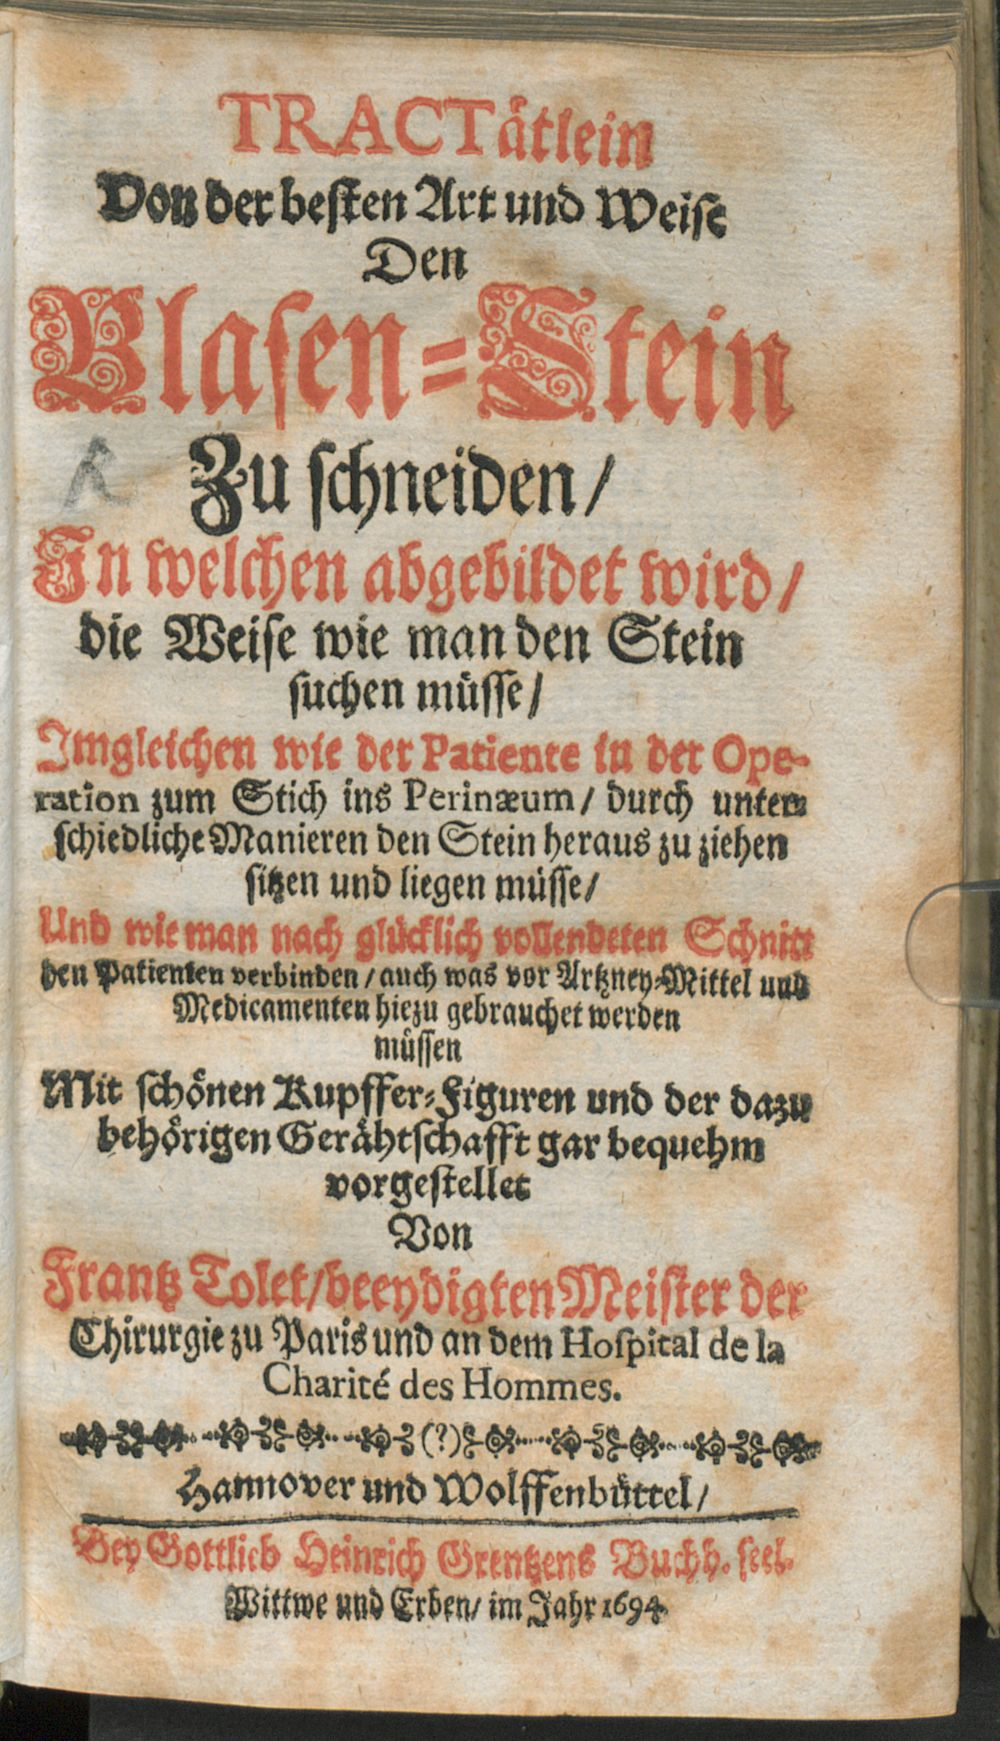 TRACTätlein
Von der besten Art und Weise
Den
Blasen-Stein
Zu schneiden/
In welchen abgebildet wird/
die Weise wie man den Stein
suchen müsse/
Imgleichen wie der Patiente in der Ope-
ration zum Stich ins Perinæum/ durch unter-
schiedliche Manieren den Stein heraus zu ziehen
sitzen und liegen müsse/
Und wie man nach glücklich vollendeten Schnitt
den Patienten verbinden/ auch was vor Artzney-Mittel und
Medicamenten hiezu gebrauchet werden
müssen
Mit schönen Kupffer-Figuren und der dazu
behörigen Gerähtschafft gar bequehm
vorgestellet
Von
Frantz Tolet/ beeydigten Meister der
Chirurgie zu Paris und an dem Hospital de la
Charité des Hommes.
(?)
Hannover und Wolffenbüttel/
Bey Gottlieb Heinrich Grentzens Buchh. seel.
Wittwe und Erben/ im Jahr 1694